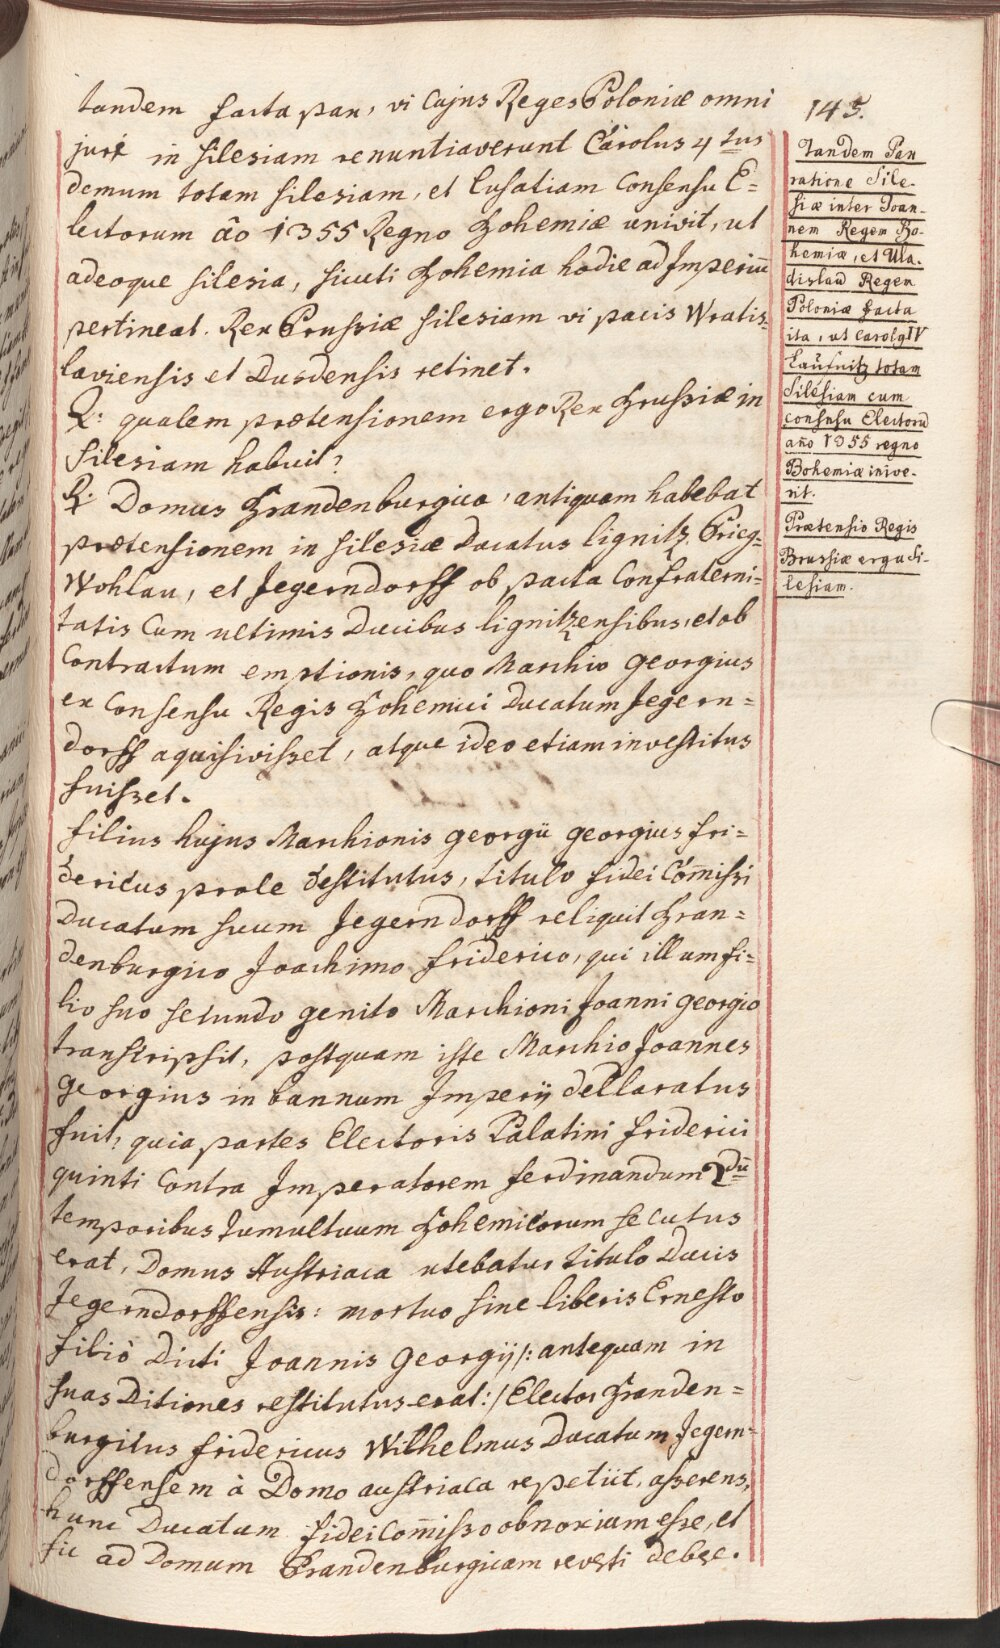 tandem facta pax, vi cujus Reges Poloniæ omni
jure in Silesiam renuntiaverunt Carolus 4tus
demum totam Silesiam, et Lusatiam Consensu E=
lectorum aō 1355 Regno Bohemiæ univit, ut
adeoque Silesia, sicuti Bohemia hodie ad Imperiū
pertineat. Rex Prussiæ Silesiam vi pacis Wratis=
laviensis et Dresdensis retinet.
Q: qualem prætensionem ergo Rex Brussiæ in
Silesiam habuit?
R: Domus Brandenburgica, antiquam habebat
prætensionem in Silesiæ Ducatus lignitz, Brieg=
Wohlau, et Jegerndorff ob pacta Confraterni=
tatis Cum ultimis Ducibus lignitzensibus, et ob
Contractum emptionis, quo Marchio georgius
ex Consensu Regis Bohemici Ducatum Jegern=
dorff aquisivisset, atque ideo etiam investitus
fuisset.
filius hujus Marchionis georgii georgius fri=
dericus prole destitutus, titulo fidei Com̄issi
Ducatum suum Jegerndorff reliquit Bran=
denburgico Joachimo friderico, qui illum fi=
lio suo secundo genito Marchioni Joanni georgio
transcripsit, postquam iste Marchio Joannes
georgius in bannum Imperij declaratus
fuit, quia partes Electoris Palatini friderici
quinti Contra Imperatorem ferdinandum 2dū
temporibus tumultuum Bohemicorum secutus
erat, Domus Austriaca utebatur titulo Ducis
Jegerndorffensis: mortuo sine liberis Ernesto
filiò dicti Joannis georgij /: antequam in
suas Ditiones restitutus erat :/ Elector Branden=
burgicus fridericus Wilhelmus Ducatum Jegern=
dorffensem à Domo austriaca repetiit, asserens,
hunc Ducatum fidei Com̄isso obnoxium esse, et
sic ad Domum Brandenburgicam reverti debere.
145.
Tandem Pax
ratione Sile-
siæ inter Joan-
nem Regem Bo-
hemiæ, et Ula-
dislau Regem
Poloniæ facta
ita, ut Carolg IV
Laüsnitz totam
Silesiam cum
consensu Electorū
año 1355 regno
Bohemiæ inive-
rit.
Prætensio Regis
Brussiæ erga Si-
lesiam.